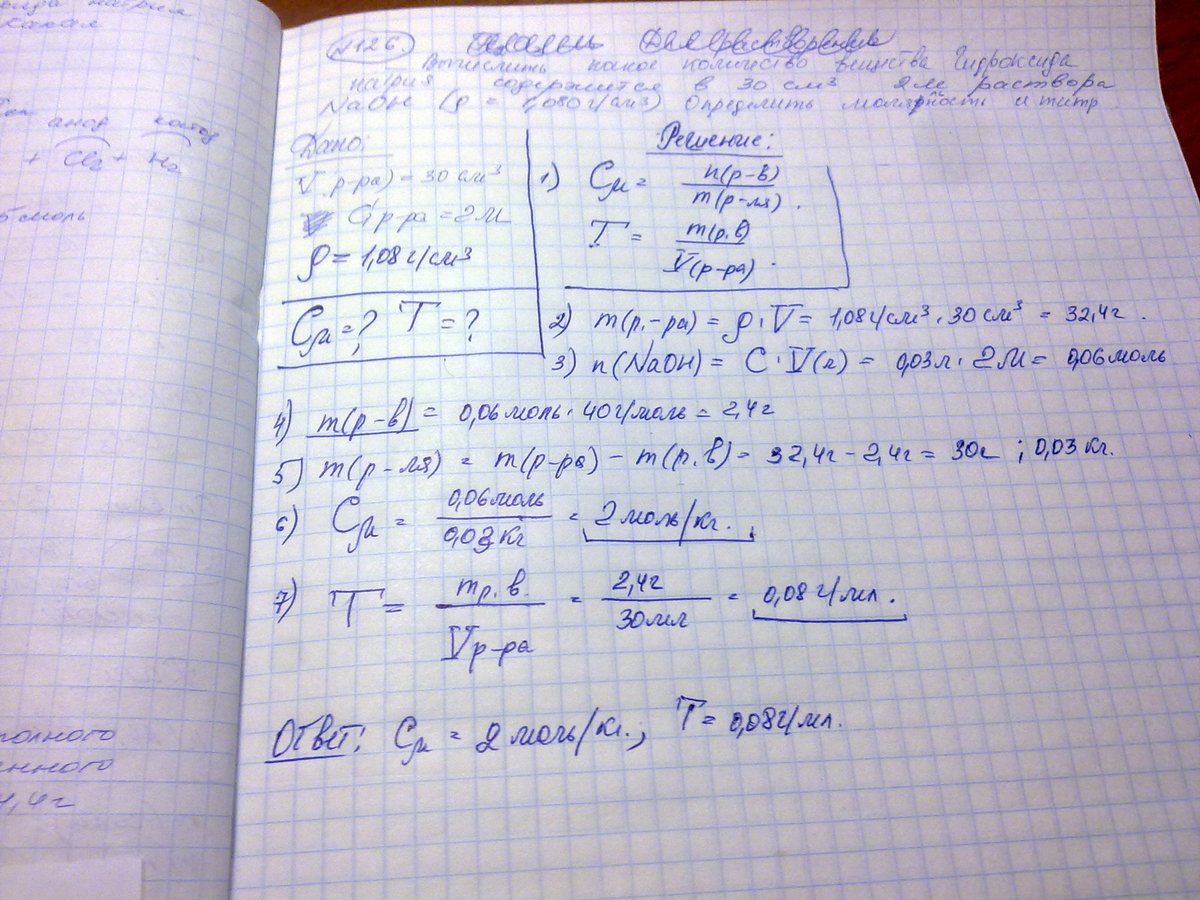 катод
анод
+ Cl2 + H2
моль
№126.
Вычислить какое количество вещества Гидроксида
натрия содержится в 30 см³ 2М раствора
NaOH (ρ = 1,080 г/см³) Определить моляльность и титр
Дано:
V(р-ра) = 30 см³
С р-ра = 2М
ρ = 1,08 г/см³
См = ? T = ?
Решение:
1) См = n(р-в) / m(р-ля).
T = m(р.в) / V(р-ра).
2) m(р.-ра) = ρ · V = 1,08 г/см³ · 30 см³ = 32,4г.
3) n(NaOH) = C · V(л) = 0,03л · 2М = 0,06моль
4) m(р-в) = 0,06моль · 40г/моль = 2,4г
5) m(р-ля) = m(р-ра) - m(р.в) = 32,4г - 2,4г = 30г ; 0,03 кг.
6) См = 0,06моль / 0,03 кг = 2 моль/кг.
7) T = mр.в. / Vр-ра = 2,4г / 30мл = 0,08 г/мл.
Ответ: См = 2 моль/кг.; T = 0,08г/мл.
полного
4,4г